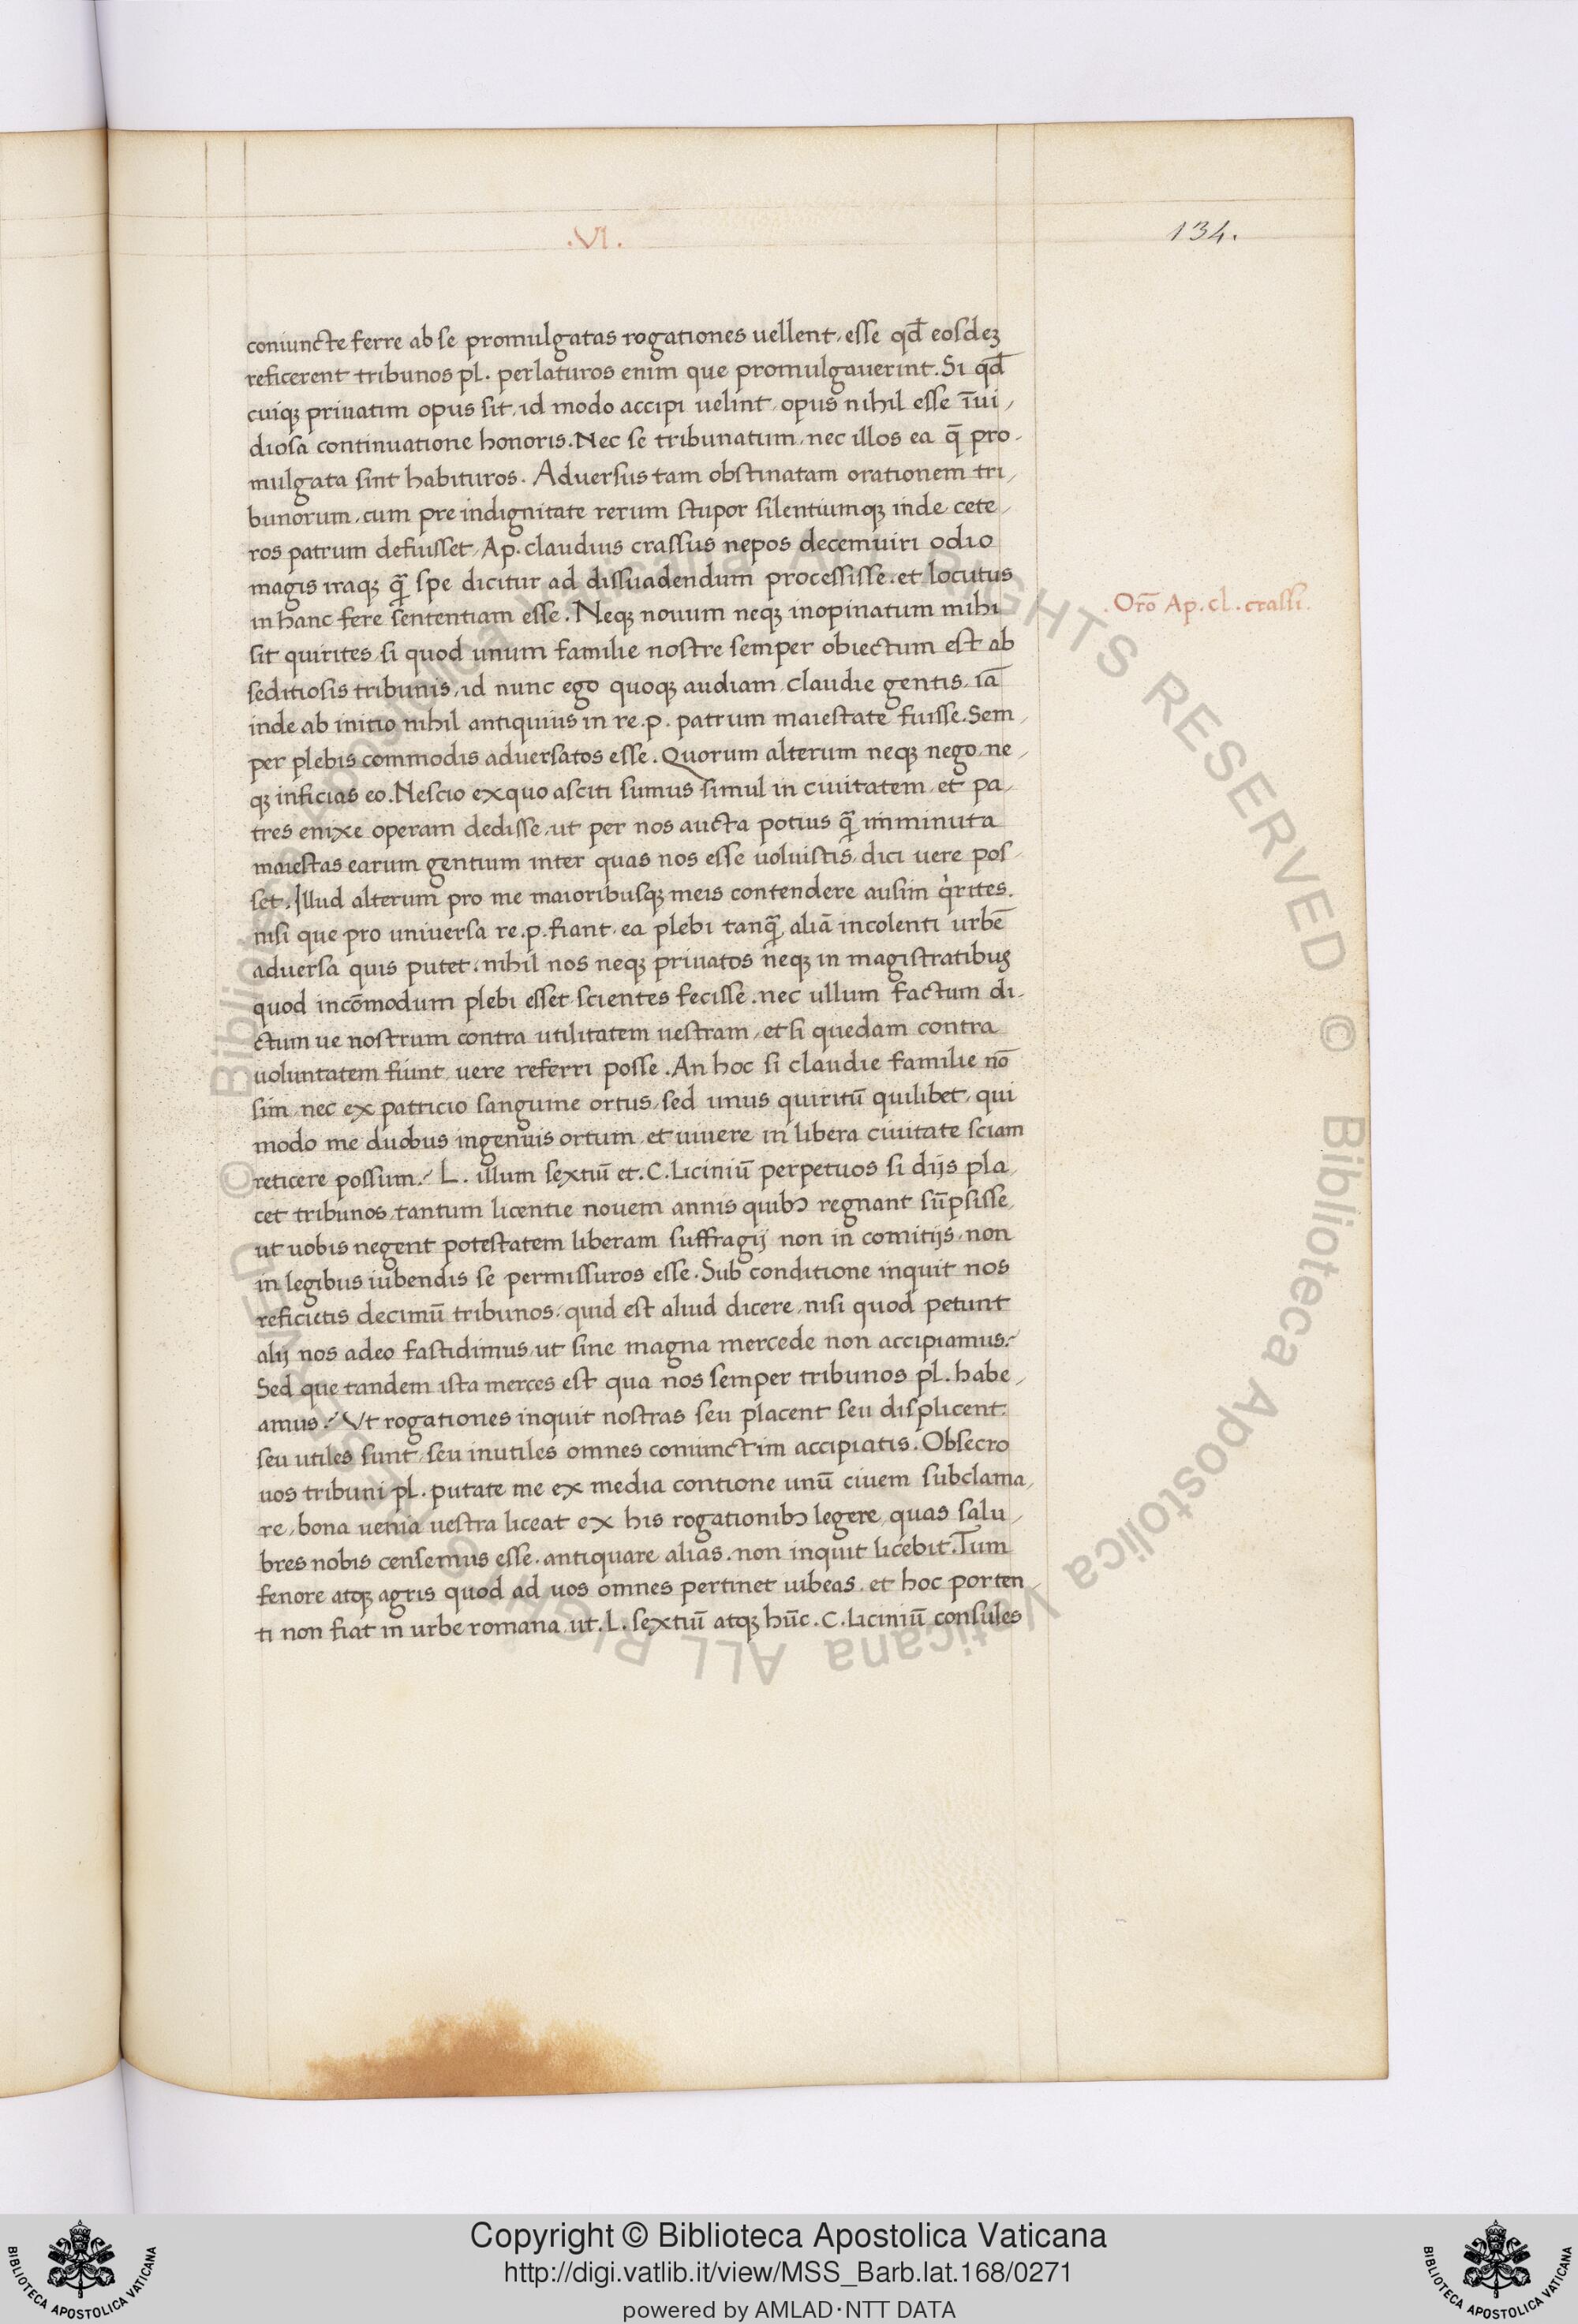 .VI.
134.
coniuncte ferre ab se promulgatas rogationes uellent, esse qđ eosdeꝫ
reficerent tribunos pl. perlaturos enim que promulgauerint. Si qđ
cuiqꝫ priuatim opus sit, id modo accipi uelint, opus nihil esse īui,
diosa continuatione honoris. Nec se tribunatum, nec illos ea q̄ pro,
mulgata sint habituros. Aduersus tam obstinatam orationem tri,
bunorum, cum pre indignitate rerum stupor silentiumqꝫ inde cete,
ros patrum defuisset, Ap. claudius crassus nepos decemuiri odio
magis iraqꝫ q̄ spe dicitur ad dissuadendum processisse. et locutus
in hanc fere sententiam esse. Neqꝫ nouum neqꝫ inopinatum mihi
. Orō Ap. cl. crassi.
sit quirites, si quod unum familie nostre semper obiectum est ab
seditiosis tribunis, id nunc ego quoqꝫ audiam, claudie gentis, iā
inde ab initio nihil antiquius in re. p. patrum maiestate fuisse. Sem,
per plebis commodis aduersatos esse. Quorum alterum neqꝫ nego, ne,
qꝫ inficias eo. Nescio exquo asciti sumus simul in ciuitatem, et pa,
tres enixe operam dedisse, ut per nos aucta potius q̄ imminuta
maiestas earum gentium inter quas nos esse uoluistis, dici uere pos,
set. Illud alterum pro me maioribusqꝫ meis contendere ausim qͥrites.
nisi que pro uniuersa re. p. fiant, ea plebi tanq̄, aliā incolenti urbē
aduersa quis putet. nihil nos neqꝫ priuatos neqꝫ in magistratibus
quod incōmodum plebi esset scientes fecisse. nec ullum factum di,
ctum ue nostrum contra utilitatem uestram, et si quedam contra
uoluntatem fiunt, uere referri posse. An hoc si claudie familie nō
sim, nec ex patricio sanguine ortus, sed unus quiritū quilibet, qui
modo me duobus ingenuis ortum, et uiuere in libera ciuitate sciam
reticere possum? L. illum sextiū et. C. Liciniū perpetuos si dijs pla,
cet tribunos, tantum licentie nouem annis quibꝰ regnant sūpsisse,
ut uobis negent potestatem liberam suffragij non in comitijs, non
in legibus iubendis se permissuros esse. Sub conditione inquit nos
reficietis decimū tribunos, quid est aliud dicere, nisi quod petunt
alij nos adeo fastidimus, ut sine magna mercede non accipiamus?
Sed que tandem ista merces est qua nos semper tribunos pl. habe,
amus? Vt rogationes inquit nostras seu placent seu displicent.
seu utiles sunt, seu inutiles omnes coniunctim accipiatis. Obsecro
uos tribuni pl. putate me ex media contione unū ciuem subclama,
re, bona uenia uestra liceat ex his rogationibꝰ legere, quas salu,
bres nobis censemus esse. antiquare alias. non inquit licebit. Tum
fenore atqꝫ agris quod ad uos omnes pertinet iubeas, et hoc porten,
ti non fiat in urbe romana, ut. L. sextiū atqꝫ hūc. C. Liciniū consules
© Biblioteca Apostolica Vaticana ALL RIGHTS RESERVED © Biblioteca Apostolica Vaticana ALL RIGHTS RESERVED
BIBLIOTECA APOSTOLICA VATICANA
Copyright © Biblioteca Apostolica Vaticana
http://digi.vatlib.it/view/MSS_Barb.lat.168/0271
powered by AMLAD·NTT DATA
BIBLIOTECA APOSTOLICA VATICANA